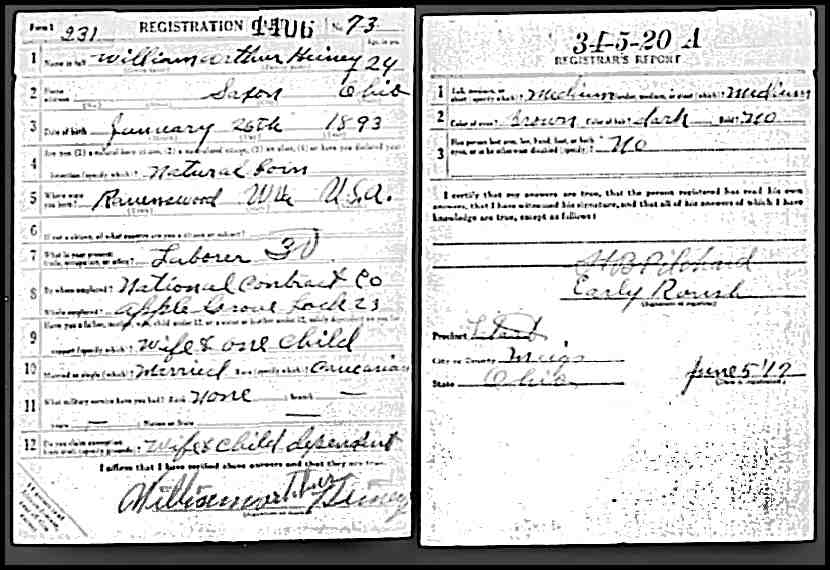 Form 1 231 REGISTRATION 1406 No. 73
1 Name in full William Arthur Heiney 24
Age, in yrs.
2 Home address Saxon Ohio
3 Date of birth January 26th 1893
4 Are you (1) a natural-born citizen, (2) a naturalized citizen, (3) an alien, (4) or have you declared your
intention (specify which)? Natural born
5 Where were you born? Ravenswood W Va U.S.A.
6 If not a citizen, of what country are you a citizen or subject?
7 What is your present trade, occupation, or office? Laborer 30
8 By whom employed? National Contract Co
Where employed? Apple Grove Lock 23
9 Have you a father, mother, wife, child under 12, or a sister or brother under 12, solely dependent on you for
support (specify which)? Wife & one child
10 Married or single (which)? Married Race (specify which)? Caucasian
11 What military service have you had? Rank None branch —
years — Nation or State —
12 Do you claim exemption from draft (specify grounds)? Wife & child dependent
I affirm that I have verified above answers and that they are true.
William Arthur Heiney
34-5-20 A
REGISTRAR'S REPORT
1 Tall, medium, or short (specify which)? Medium Slender, medium, or stout (which)? Medium
2 Color of eyes? Brown Color of hair? dark Bald? No
3 Has person lost arm, leg, hand, foot, or both
eyes, or is he otherwise disabled (specify)? No
I certify that my answers are true, that the person registered has read his own
answers, that I have witnessed his signature, and that all of his answers of which I have
knowledge are true, except as follows:
Early Roush
(Signature of registrar)
Precinct
City or County Meigs
State Ohio
June 5 '17
(Date of registration)